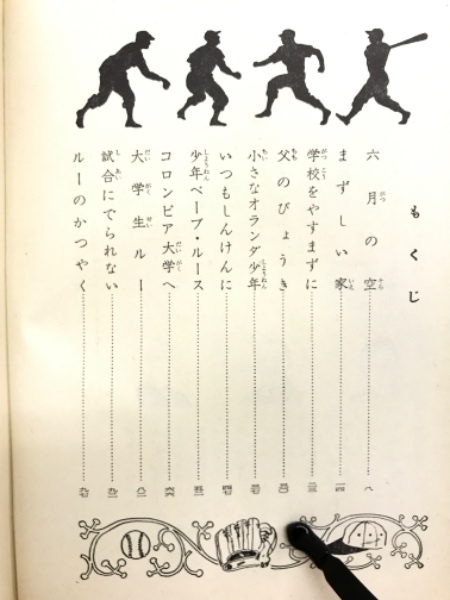 もくじ
六月の空……八
まずしい家……一四
学校をやすまずに
父のびょうき
小さなオランダ少年
いつもしんけんに
少年ベーブ・ルース
コロンビア大学へ
大学生ルー
試合にでられない
ルーのかつやく